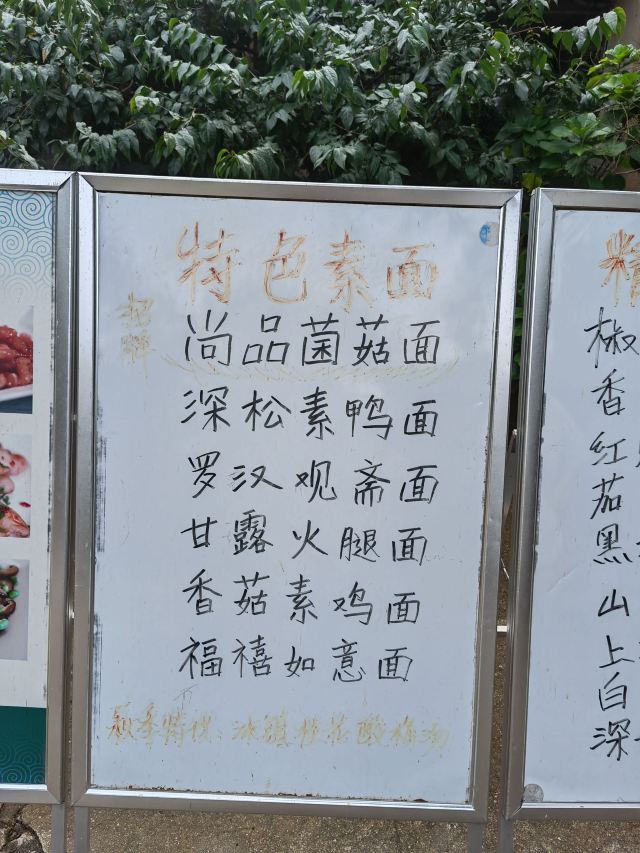 特色素面
招牌
尚品菌菇面
深松素鸭面
罗汉观斋面
甘露火腿面
香菇素鸡面
福禧如意面
夏季特供:冰镇桂花酸梅汤
精
椒
香
红
茄
黑
山
上
白
深